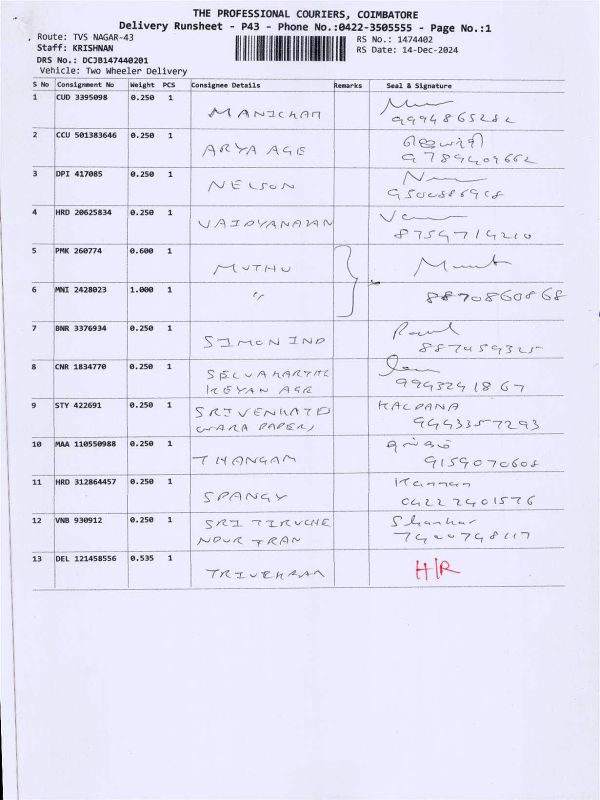 THE PROFESSIONAL COURIERS, COIMBATORE
Delivery Runsheet - P43 - Phone No.:0422-3505555 - Page No.:1
Route: TVS NAGAR-43
RS No.: 1474402
Staff: KRISHNAN
RS Date: 14-Dec-2024
DRS No.: DCJB147440201
Vehicle: Two Wheeler Delivery
S No Consignment No Weight PCS Consignee Details Remarks Seal & Signature
1 CUD 3395098 0.250 1
MANICKAM
9994865282
2 CCU 501383646 0.250 1
ARYA AGE
9789409662
3 DPI 417085 0.250 1
NELSON
4 HRD 20625834 0.250 1
8754714210
5 PMK 260774 0.600 1
MUTHU
6 MNI 2428023 1.000 1
"
8870860868
7 BNR 3376934 0.250 1
SIMON IND
8 CNR 1834770 0.250 1
SELVAKARTHI
KEYAN AGE
9943241867
9 STY 422691 0.250 1
KALPANA
SRIVENKATES
WARA PAPERS
9443357293
10 MAA 110550988 0.250 1
THANGAM
9159070608
11 HRD 312864457 0.250 1
Kannan
SPANGY
0422 2401576
12 VNB 930912 0.250 1
SRI TIRUCHE
Shankar
NDUR TRAN
13 DEL 121458556 0.535 1
H/R